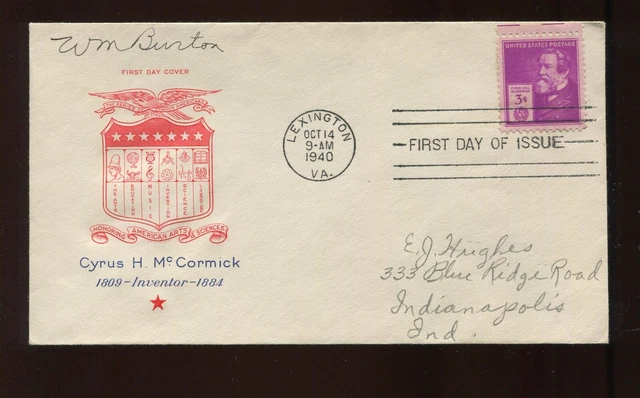 Wm Burton
FIRST DAY COVER
HONORING AMERICAN ARTS & SCIENCES
Cyrus H. McCormick
1809-Inventor-1884
LEXINGTON
OCT 14
9-AM
1940
VA.
FIRST DAY OF ISSUE
UNITED STATES POSTAGE
3¢
E.J. Hughes
333 Blue Ridge Road
Indianapolis
Ind.